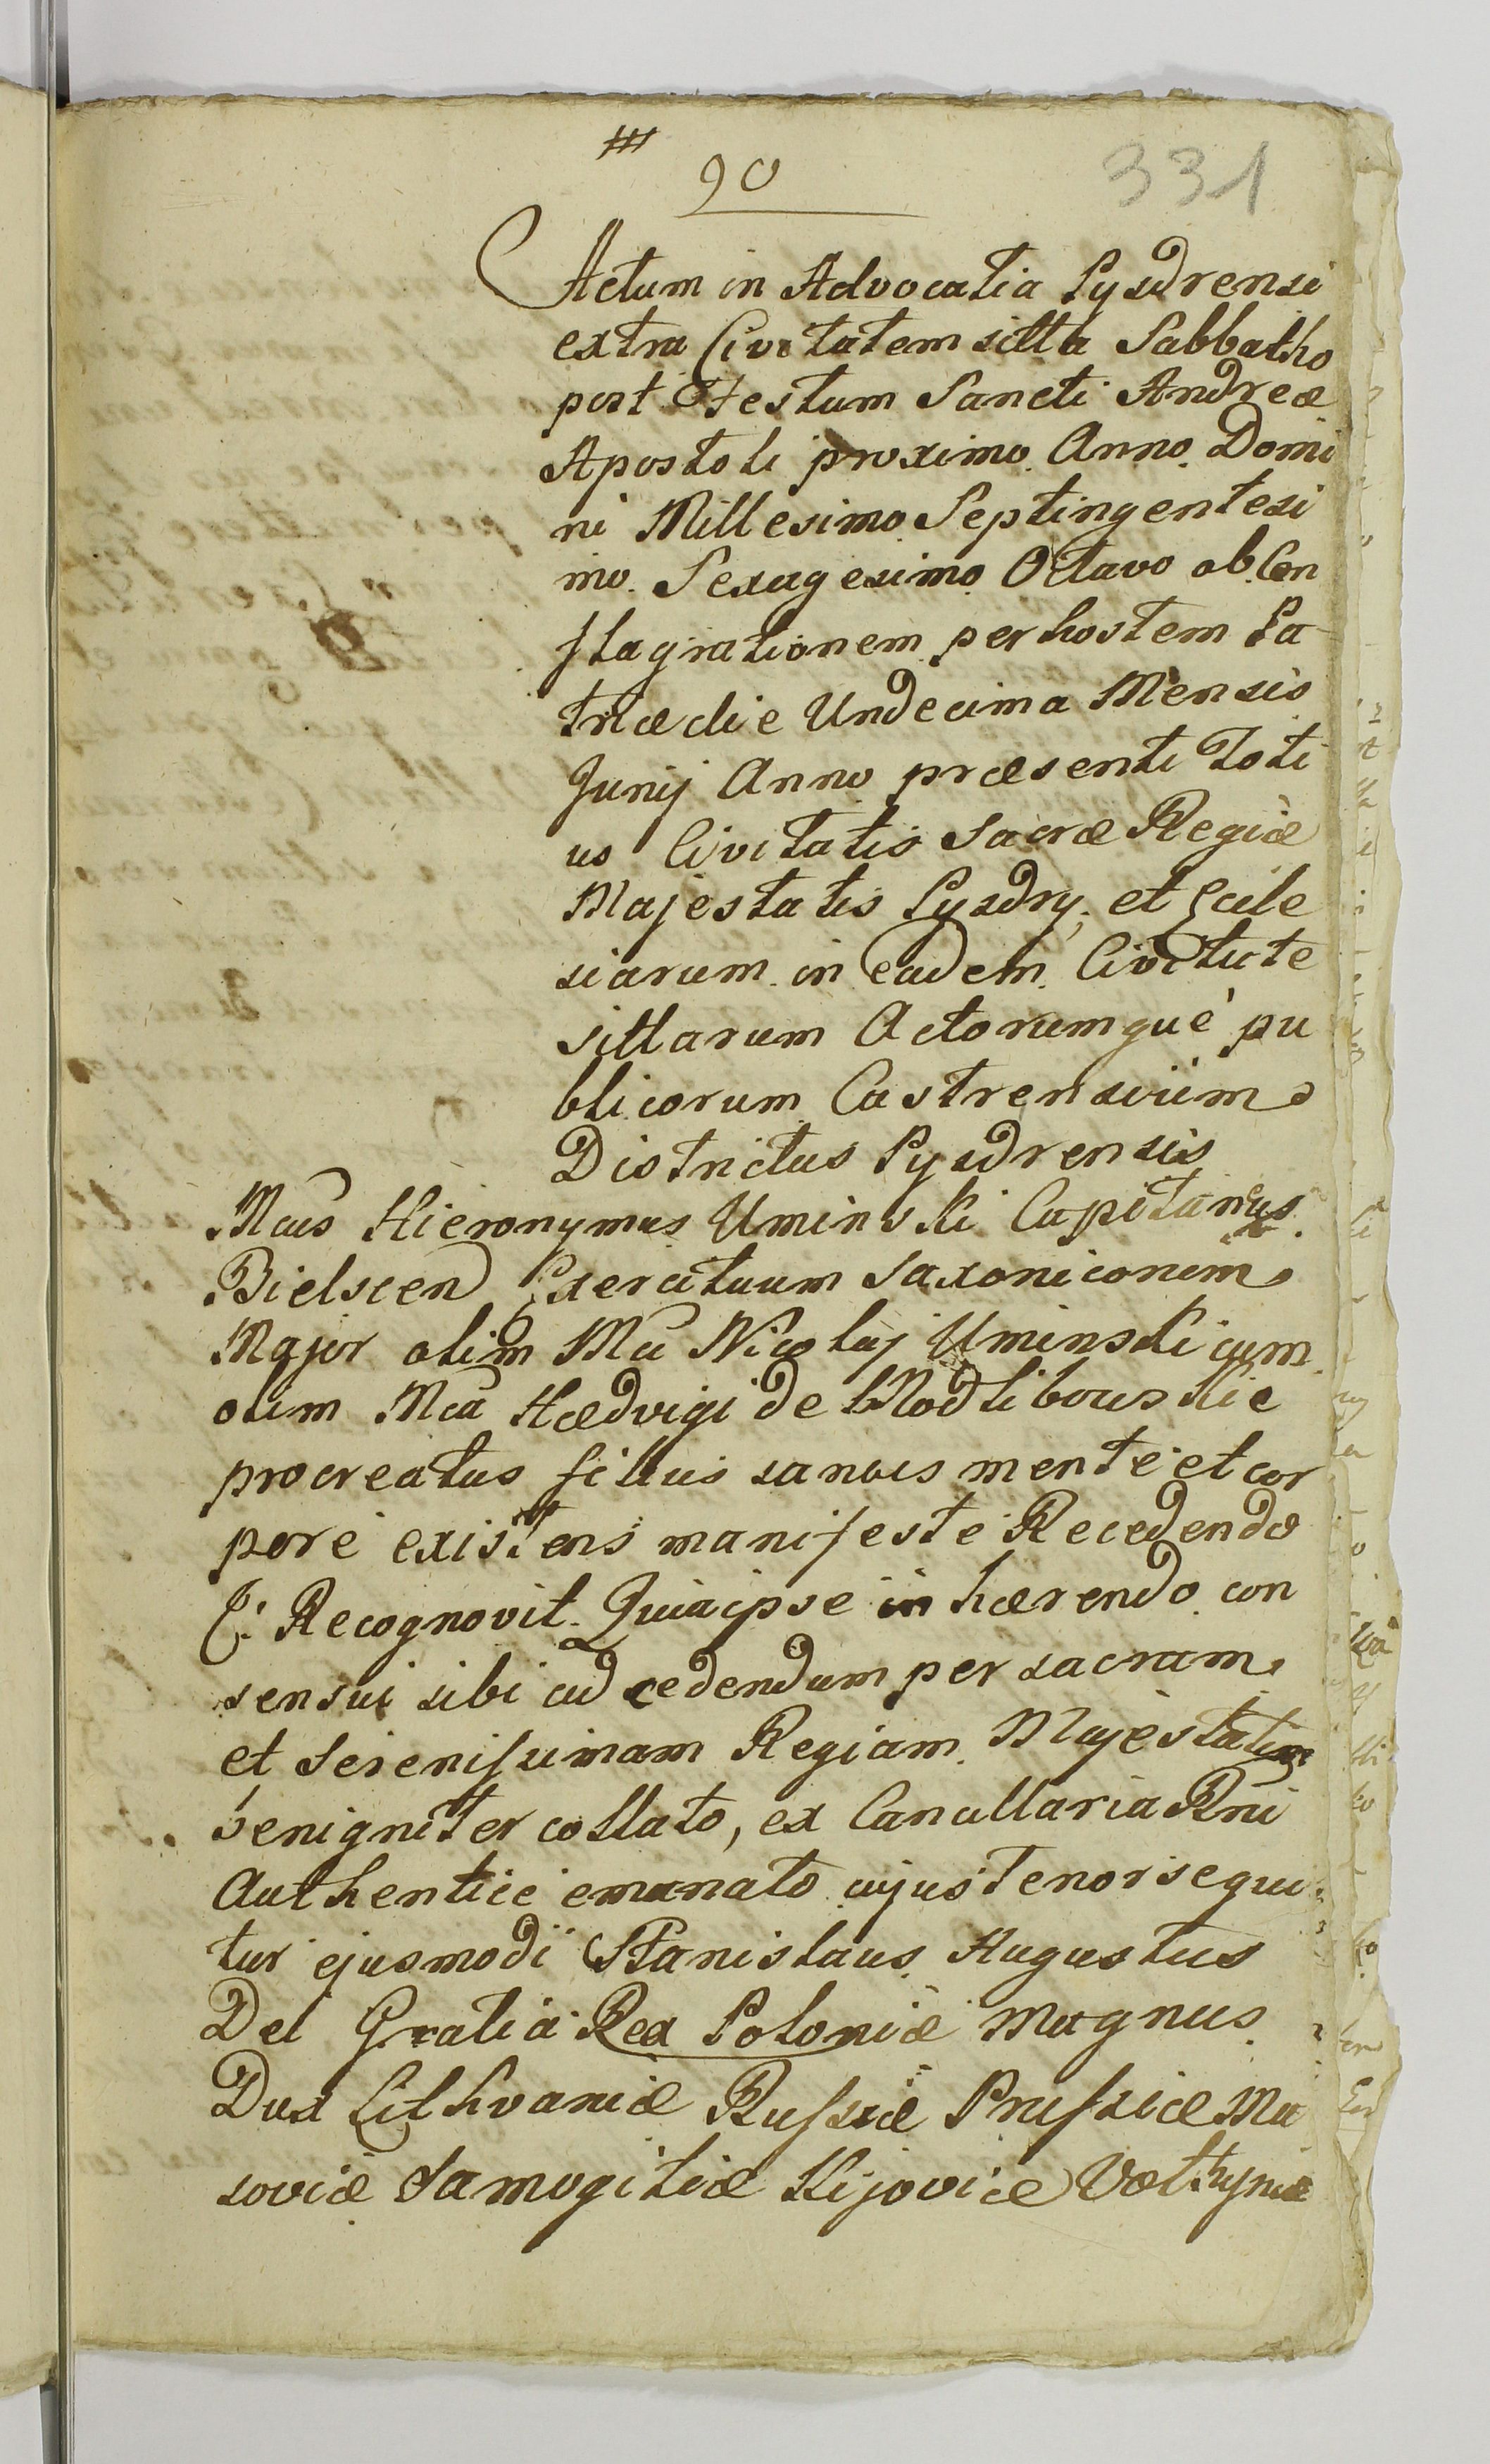 90
331
Actum in Advocatia Pysdrensi
extra Civitatem sitta Sabbatho
post Festum Sancti Andreæ
Apostoli proximo Anno Domi
ni Millesimo Septingentesi
mo Sexagesimo Octavo ob Con
flagrationem per hostem Pa
triæ die Undecima Mensis
Junij Anno præsenti Toti
us Civitatis Sacræ Regiæ
Majestatis Pysdry et Eccle
siarum in eadem Civitate
sittarum Actorumque pu
blicorum Castrensium
Districtus Pysdrensis
Mcus Hieronymus Uminski Capitaneus
Bielscen Exercituum Saxoniconum
Major olim Mci Nicolaj Uminski cum
olim Mca Hædvigi de Modlibowskie
procreatus filius sanus mente et cor
pore existens manifeste Recedendo
&: Recognovit Quia ipse in hærendo con
sensui sibi ad cedendum per sacram
et Serenissimam Regiam Majestatem
benigniter collato, ex Cancellaria Rni
Authentice emanato cujus Tenor sequi
tur ejusmodi Stanislaus Augustus
Dei Gratia Rex Poloniæ Magnus
Dux Lithvaniæ Russiæ Prussiæ Ma
soviæ Samogitiæ Kijoviæ Volhyniæ